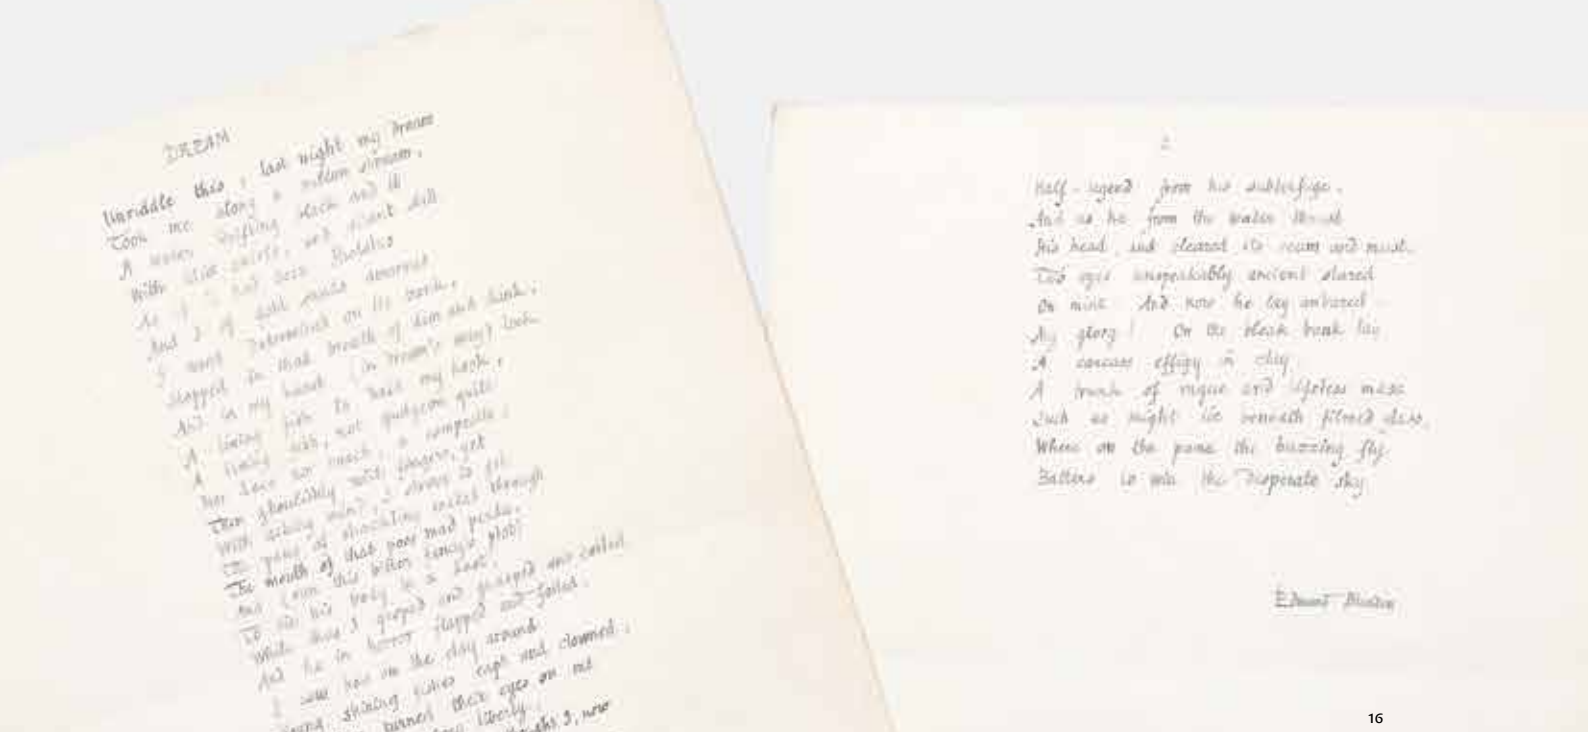 DREAM
Unriddle this, last night my dream
Took me along a sullen stream,
A water drifting black and ill
With idiot swirls, and silent still
As if it had been
And I of
I went determined on its bank,
Stopped in that breath of dim and dank,
And in my hand (in dream's way) took
A living fish to bait my hook,
A living fish, not gudgeon quite
Nor dace nor roach, a composite;
Then ghoulishly with fingers, yet
With aching mind, I strove to get
The pang of shackling metal through
The mouth of that poor mad perdu,
And (ran this bitter time's plot)
To tie his body in a knot.
While thus I groped and grasped and coiled
And he in horror flapped and foiled,
I saw how on the clay around
Young shining fishes leapt and clowned,
turned their eyes on me
liberty.
thought I, now
2
Half-agent from his subterfuge.
And as he from the water thrust
His head, and cleared its scum and must,
Two eyes unspeakably ancient stared
On mine. And now he lay unbared
My glory! On the bleak bank lay
A carcass effigy in clay
A trunk of vague and lifeless mass
Such as might lie beneath filmed glass,
Where on the pane the buzzing fly
Batters to win the desperate sky.
Edmund Blunden
16